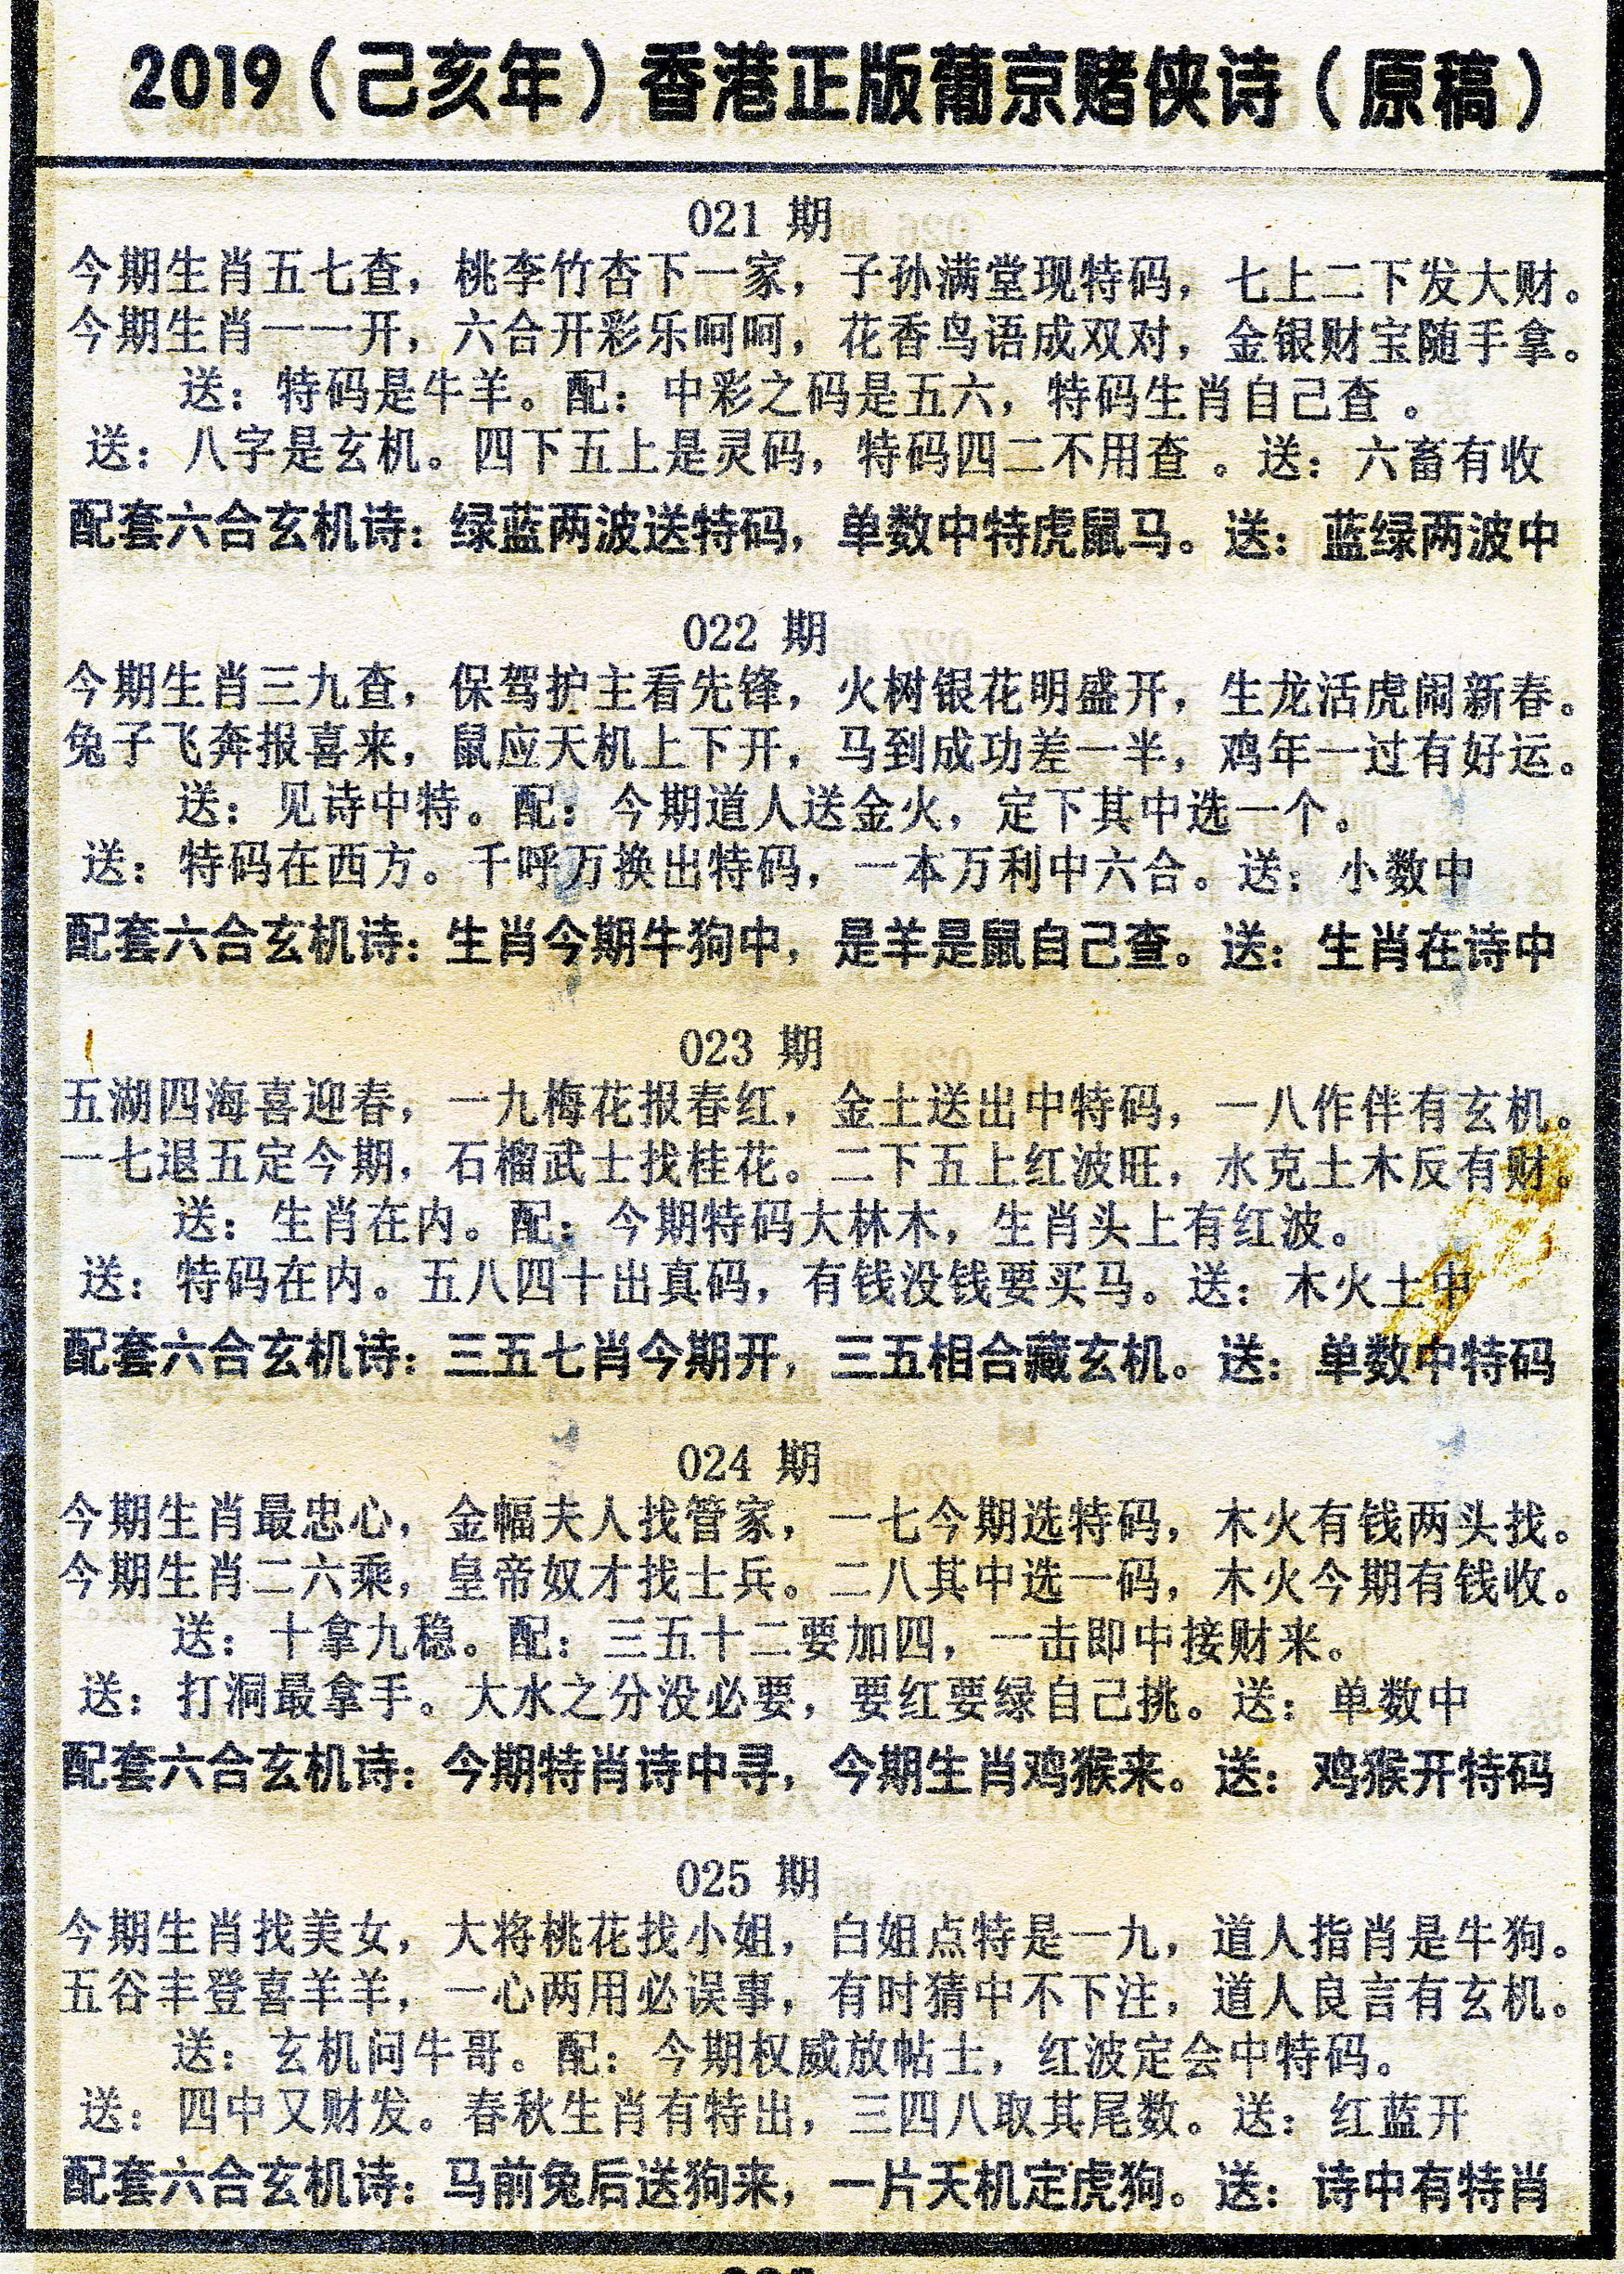 2019（己亥年）香港正版葡京赌侠诗（原稿）
021 期
今期生肖五七查，桃李竹杏下一家，子孙满堂现特码，七上二下发大财。
今期生肖一一开，六合开彩乐呵呵，花香鸟语成双对，金银财宝随手拿。
送：特码是牛羊。配：中彩之码是五六，特码生肖自己查。
送：八字是玄机。四下五上是灵码，特码四二不用查。送：六畜有收
配套六合玄机诗：绿蓝两波送特码，单数中特虎鼠马。送：蓝绿两波中
022 期
今期生肖三九查，保驾护主看先锋，火树银花明盛开，生龙活虎闹新春。
兔子飞奔报喜来，鼠应天机上下开，马到成功差一半，鸡年一过有好运。
送：见诗中特。配：今期道人送金火，定下其中选一个。
送：特码在西方。千呼万换出特码，一本万利中六合。送：小数中
配套六合玄机诗：生肖今期牛狗中，是羊是鼠自己查。送：生肖在诗中
023 期
五湖四海喜迎春，一九梅花报春红，金土送出中特码，一八作伴有玄机。
一七退五定今期，石榴武士找桂花。二下五上红波旺，水克土木反有财。
送：生肖在内。配：今期特码大林木，生肖头上有红波。
送：特码在内。五八四十出真码，有钱没钱要买马。送：木火土中
配套六合玄机诗：三五七肖今期开，三五相合藏玄机。送：单数中特码
024 期
今期生肖最忠心，金幅夫人找管家，一七今期选特码，木火有钱两头找。
今期生肖二六乘，皇帝奴才找士兵。二八其中选一码，木火今期有钱收。
送：十拿九稳。配：三五十二要加四，一击即中接财来。
送：打洞最拿手。大水之分没必要，要红要绿自己挑。送：单数中
配套六合玄机诗：今期特肖诗中寻，今期生肖鸡猴来。送：鸡猴开特码
025 期
今期生肖找美女，大将桃花找小姐，白姐点特是一九，道人指肖是牛狗。
五谷丰登喜羊羊，一心两用必误事，有时猜中不下注，道人良言有玄机。
送：玄机问牛哥。配：今期权威放帖士，红波定会中特码。
送：四中又财发。春秋生肖有特出，三四八取其尾数。送：红蓝开
配套六合玄机诗：马前兔后送狗来，一片天机定虎狗。送：诗中有特肖